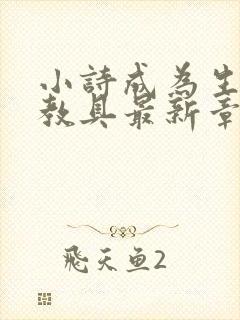 小詩成為生
教具最新章
飛天鱼2